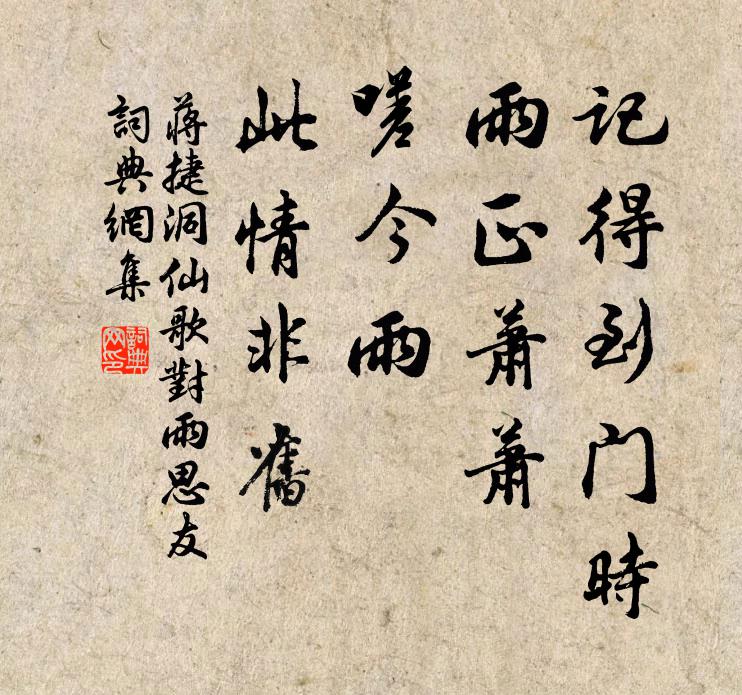 记得到门时
雨正萧萧
嗟今雨
此情非舊
蒋捷洞仙歌對雨思友
詞典網集
詞典网印